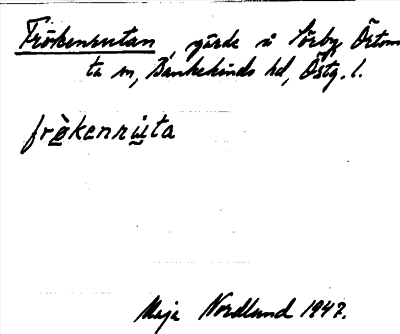 Frökenrutan, gärde å Sörby, Örtom
ta sn, Bankekinds hd, Östg. l.
frökenruta
Maja Nordlund 1947.